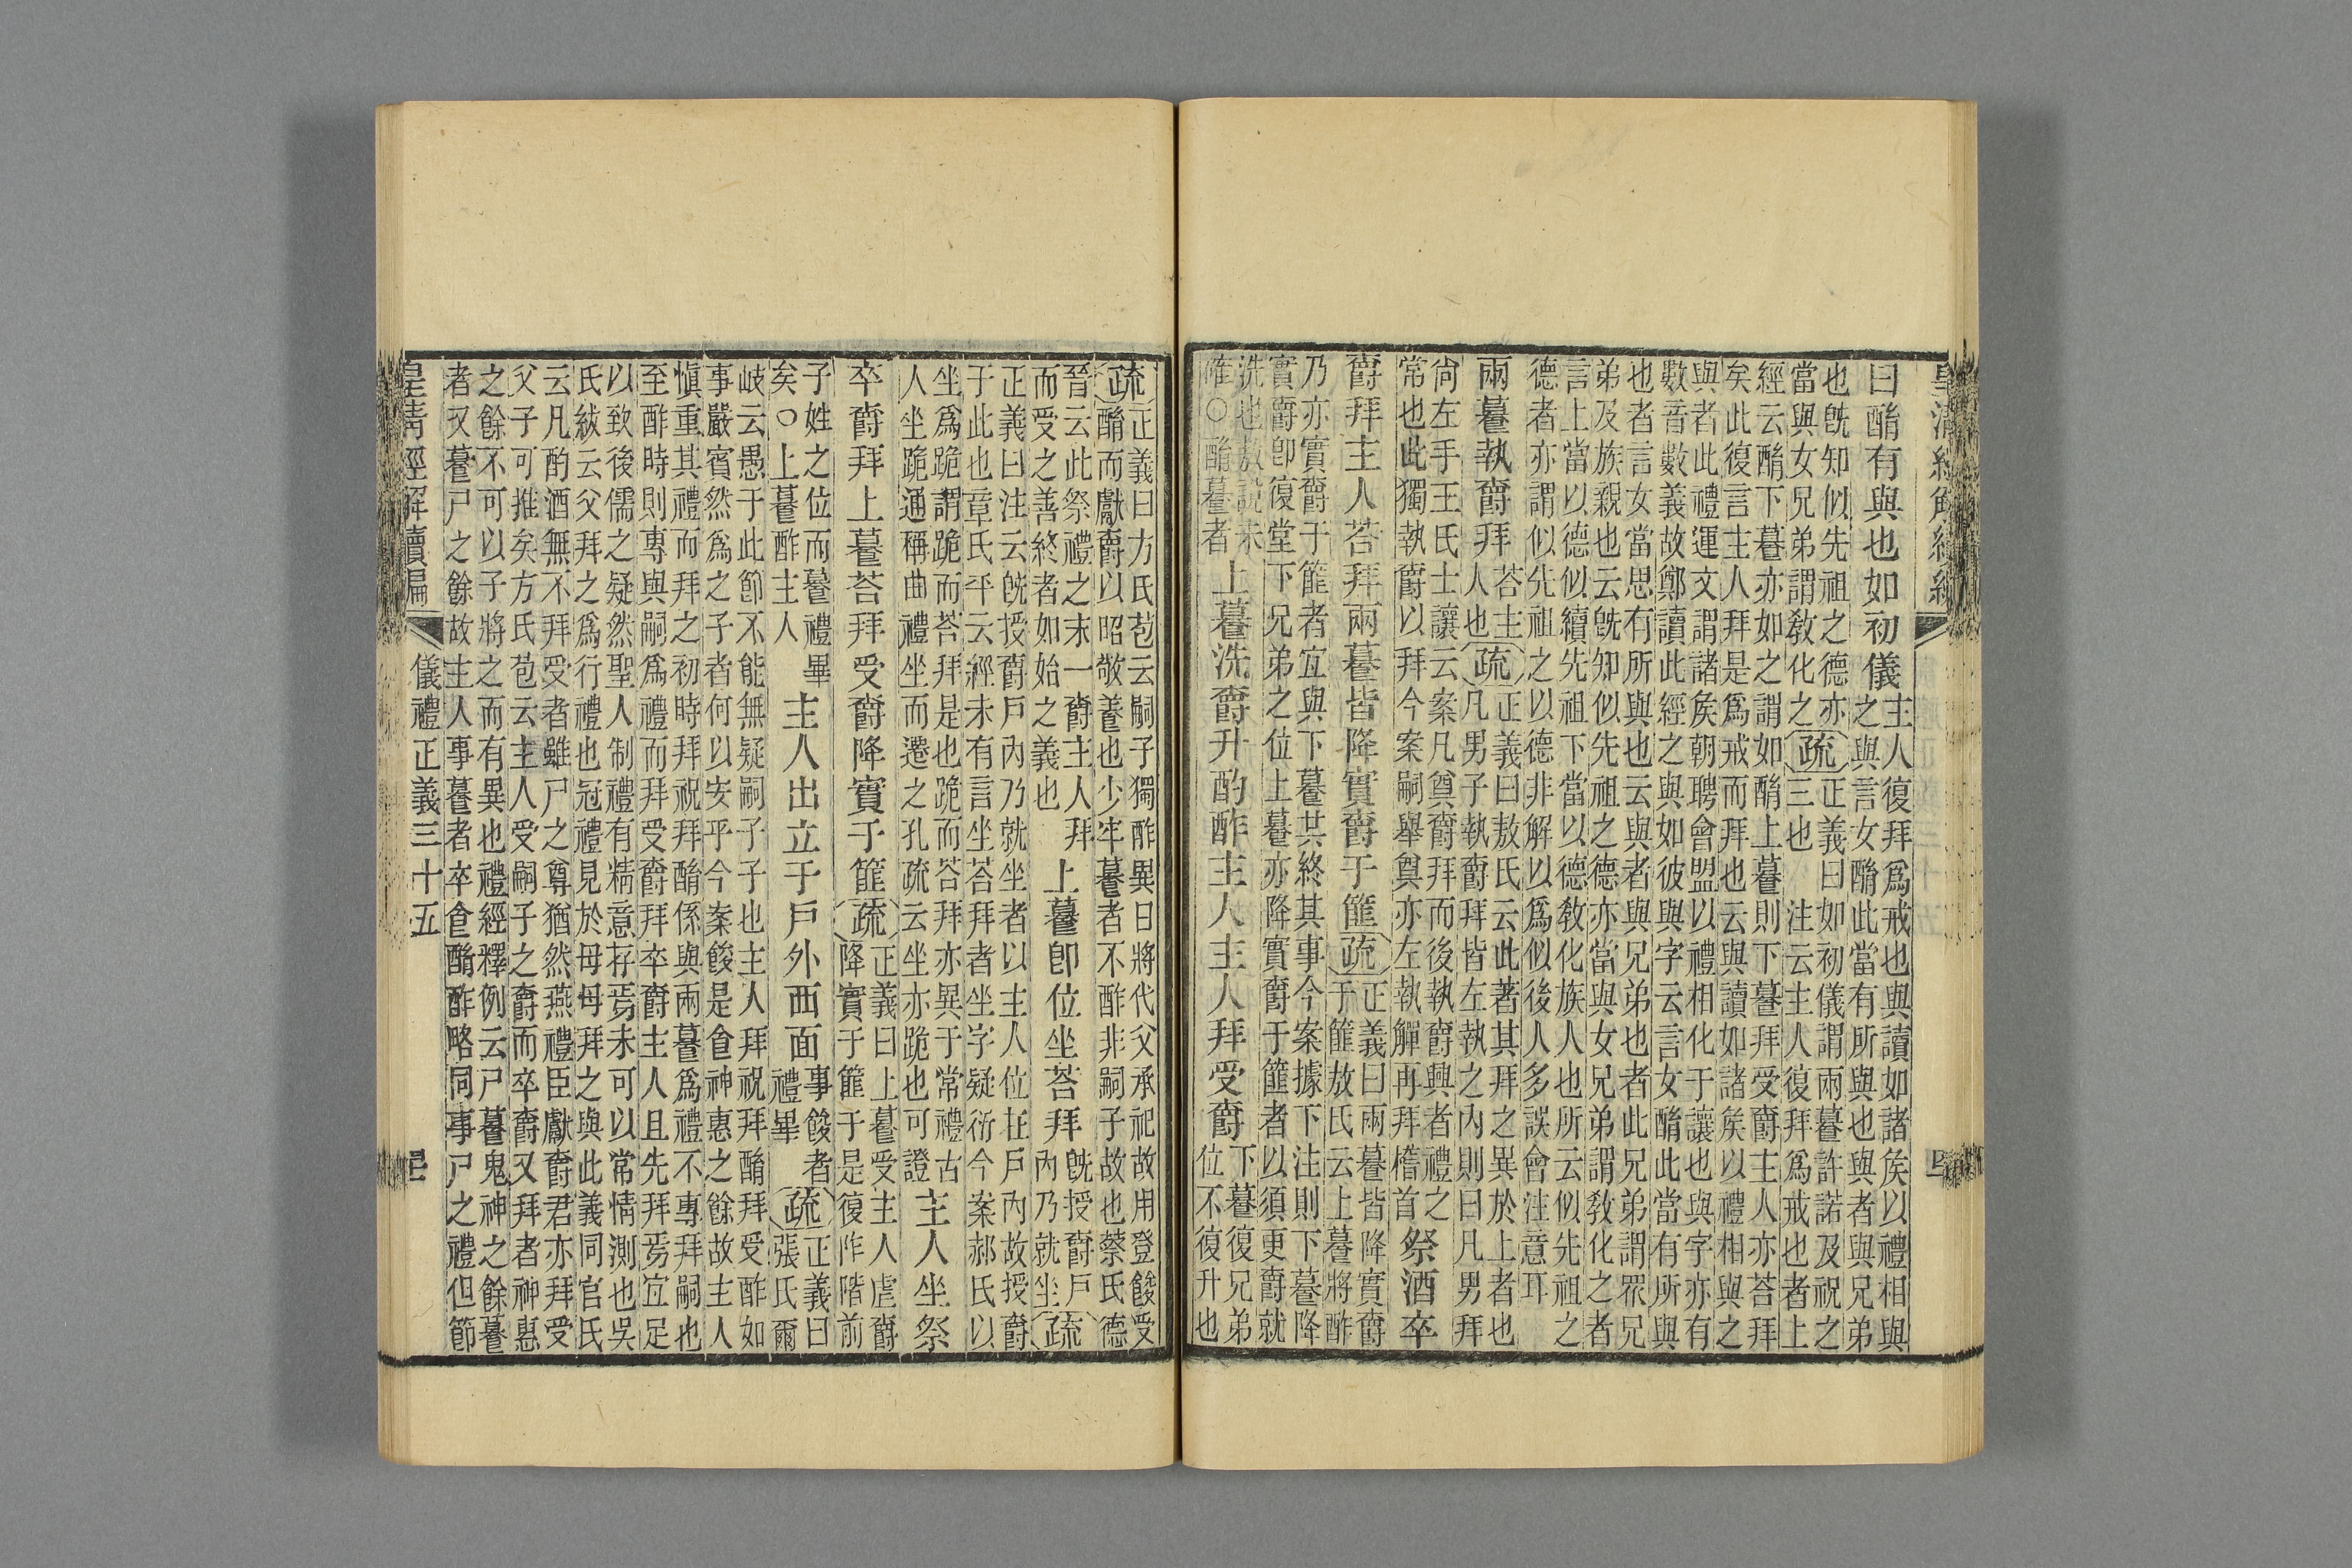 曰酳有與也如初儀主人復拜爲戒也與讀如諸矦以禮相與
之與言女酳此當有所與也與者與兄弟
也旣知似先祖之德亦
當與女兄弟謂敎化之疏正義曰如初儀謂兩䉵許諾及祝之
三也　注云主人復拜爲戒也者上
經云酳下䉵亦如之謂如酳上䉵則下䉵拜受爵主人亦荅拜
矣此復言主人拜是爲戒而拜也云與讀如諸矦以禮相與之
與者此禮運文謂諸矦朝聘會盟以禮相化于讓也與字亦有
數音數義故鄭讀此經之與如彼與字云言女酳此當有所與
也者言女當思有所與也云與者與兄弟也者此兄弟謂眾兄
弟及族親也云旣知似先祖之德亦當與女兄弟謂敎化之者
言上當以德似續先祖下當以德敎化族人也所云似先祖之
德者亦謂似先祖之以德非解以爲似後人多誤會注意耳
兩䉵執爵拜荅主
人也疏正義曰敖氏云此著其拜之異於上者也
凡男子執爵拜皆左執之內則曰凡男拜
尙左手王氏士讓云案凡奠爵拜而後執爵興者禮之
常也此獨執爵以拜今案嗣舉奠亦左執觶再拜稽首祭酒卒
爵拜主人荅拜兩䉵皆降實爵于篚疏正義曰兩䉵皆降實爵
于篚敖氏云上䉵將酢
乃亦實爵于篚者宜與下䉵共終其事今案據下注則下䉵降
實爵卽復堂下兄弟之位上䉵亦降實爵于篚者以須更爵就
洗也敖說未
○酳䉵者上䉵洗爵升酌酢主人主人拜受爵下䉵復兄弟
位不復升也
疏正義曰方氏苞云嗣子獨酢異日將代父承祀故用登餕受
酳而獻爵以昭敬養也少牢䉵者不酢非嗣子故也蔡氏德
晉云此祭禮之末一爵主人拜
而受之善終者如始之義也上䉵卽位坐荅拜旣授爵戶
內乃就坐疏
正義曰注云旣授爵戶內乃就坐者以主人位在戶內故授爵
于此也章氏平云經未有言坐荅拜者坐字疑衍今案郝氏以
坐爲跪謂跪而荅拜是也跪而荅拜亦異于常禮古
人坐跪通稱曲禮坐而遷之孔疏云坐亦跪也可證主人坐祭
卒爵拜上䉵荅拜受爵降實于篚疏正義曰上䉵受主人虛爵
降實于篚于是復阼階前
子姓之位而䉵禮畢
矣○上䉵酢主人主人出立于戶外西面事餕者
禮畢疏正義曰
張氏爾
岐云愚于此節不能無疑嗣子子也主人拜祝拜酳拜受酢如
事嚴賓然爲之子者何以安乎今案餕是食神惠之餘故主人
愼重其禮而拜之初時拜祝拜酳係與兩䉵爲禮不專拜嗣也
至酢時則專與嗣爲禮而拜受爵拜卒爵主人且先拜焉宜足
以致後儒之疑然聖人制禮有精意存焉未可以常情測也吳
氏紱云父拜之爲行禮也冠禮見於母母拜之與此義同官氏
云凡酌酒無不拜受者雖尸之尊猶然燕禮臣獻爵君亦拜受
父子可推矣方氏苞云主人受嗣子之爵而卒爵又拜者神惠
之餘不可以子將之而有異也禮經釋例云尸䉵鬼神之餘䉵
者又䉵尸之餘故主人事䉵者卒食酳酢略同事尸之禮但節
皇淸經解續編　儀禮正義三十五